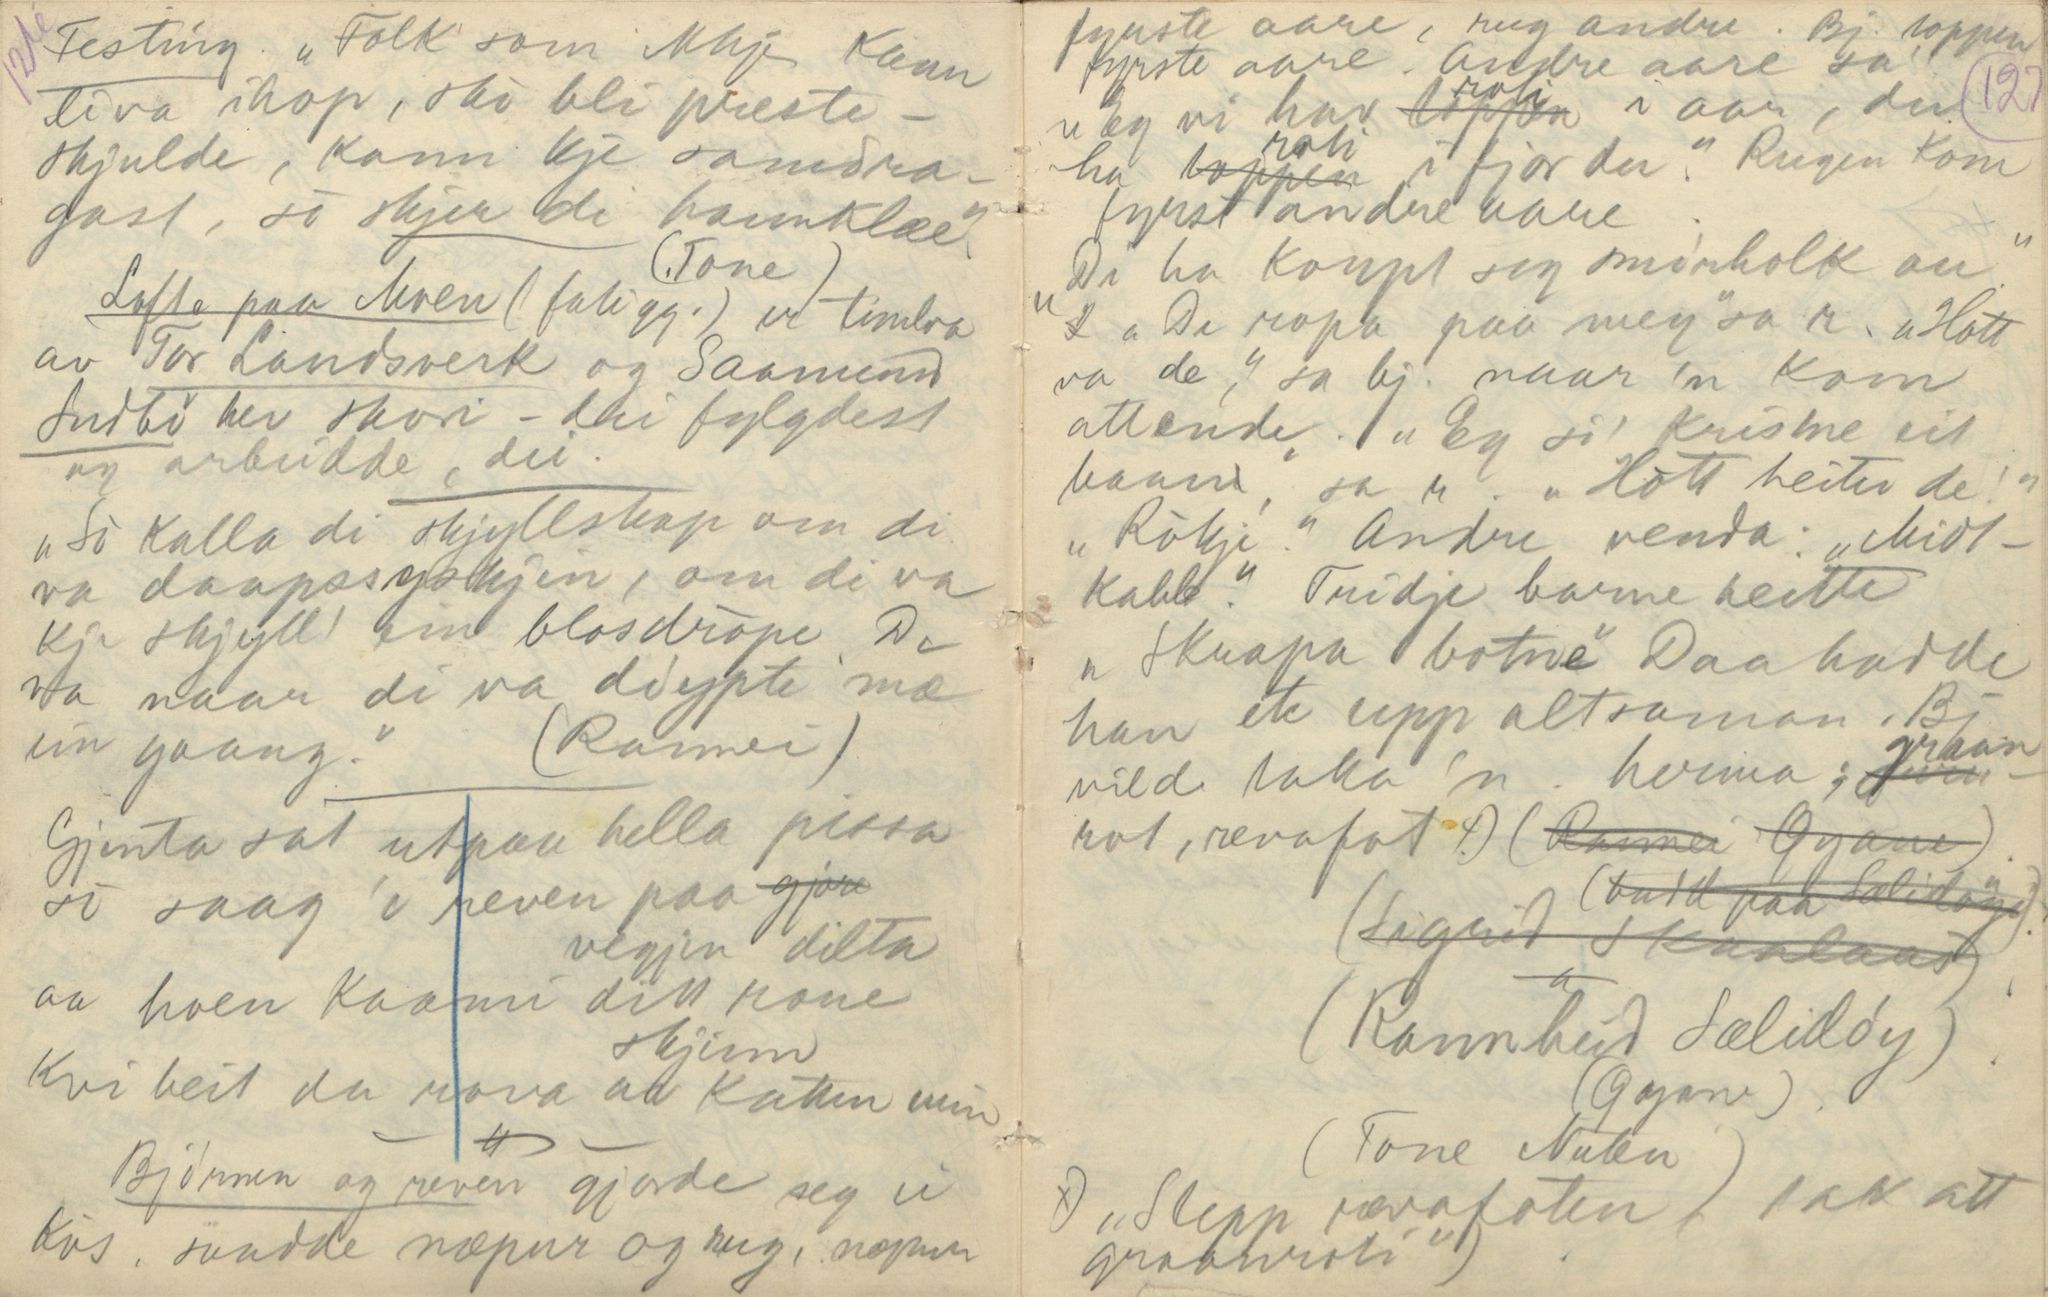 Festing. „Folk som ikkje kann
liva ihop, sko bli preste-
skjulde, kann kje samdra-
gast, so skjer di hannklæe"
(Tone)
Lofte paa Moen (fatigg.) er timbra
av Tor Landsverk og Saamund
Sudbö hev skori - dei fylgdest
og arbeidde, dei.
„So kalla di skjyllskap om di
va daapssyskjin, om di va
kje skjyll' ein blosdrope. De
va naar di va döypte mæ
ein gaang." (Rannei)
Gjenta sat utpaa hella pissa
so saag 'o reven paa gjore
vegjen dilta
aa hoen kaami ditt rone
skjinn
Kvi beit du rova au katten min
Björnen og reven gjorde seg ei
kös, saadde næpur og rug, næpur
fyrste aare, rug andre. Bj. toppen
fyrste aare. Andre aare sa:
roti
„Eg vi hav toppen i aar, du
127
roti
ha toppen i fjor du". Rugen kom
fyrst andre aare.
Di ha koupt seg smörholk au"
„De ropa paa meg" sa r. „Hott
va de," sa bj. naar 'n kom
attende. „Eg so' kristne eit
baan," sa r. „Hott heiter de!"
„Rökje". Andre venda: „Midt-
kable". Tridje barne heitte
„Skrapa botne" Daa hadde
han ete upp altsaman. Bj
graan
vilde taka 'n. herma;
rot, revafot x) (Rannei Gyane)
(budd paa Sælidöy)
(Sigrid Skaalaas)
(Rannheid Sælidöy)
(Gyane)
(Tone Nuten)
x) „Slepp revafoten, tak att
graanroti")